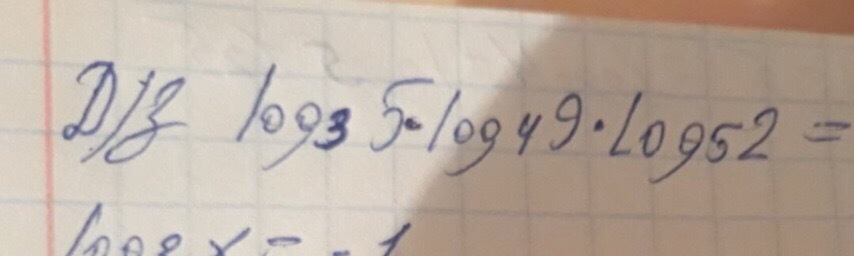 Д/з log₃ 5 · log₄ 9 · log₅ 2 =
log₈ x = -1